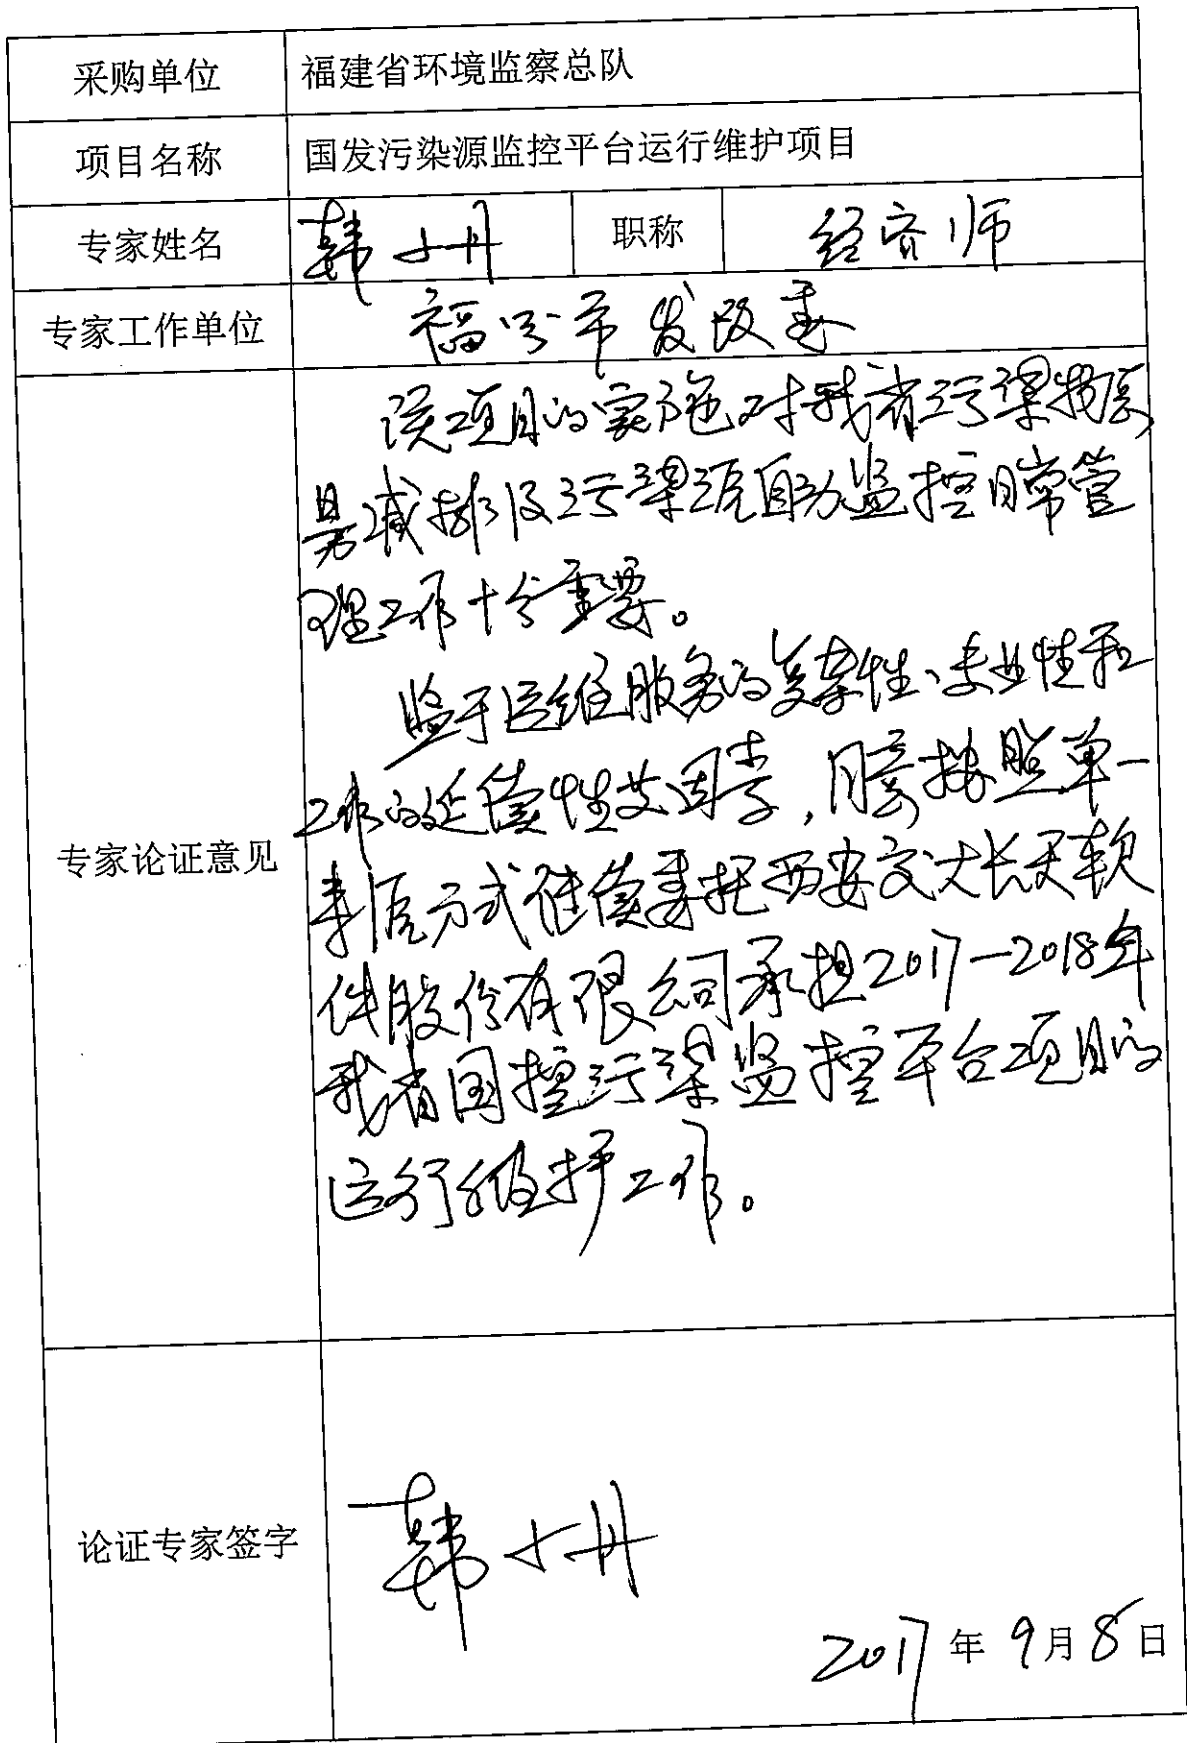 采购单位 福建省环境监察总队
项目名称 国发污染源监控平台运行维护项目
专家姓名 韩小丹 职称 经济师
专家工作单位 福州市发改委
该项目的实施对我省污染物总
量减排及污染源自动监控日常管
理工作十分重要。
鉴于运维服务的复杂性、专业性和
工作的延续性等因素，同意按照单一
专家论证意见
来源方式继续委托西安交大长天软
件股份有限公司承担2017—2018年
我省国控污染监控平台项目的
运行维护工作。
论证专家签字 韩小丹
2017年9月8日